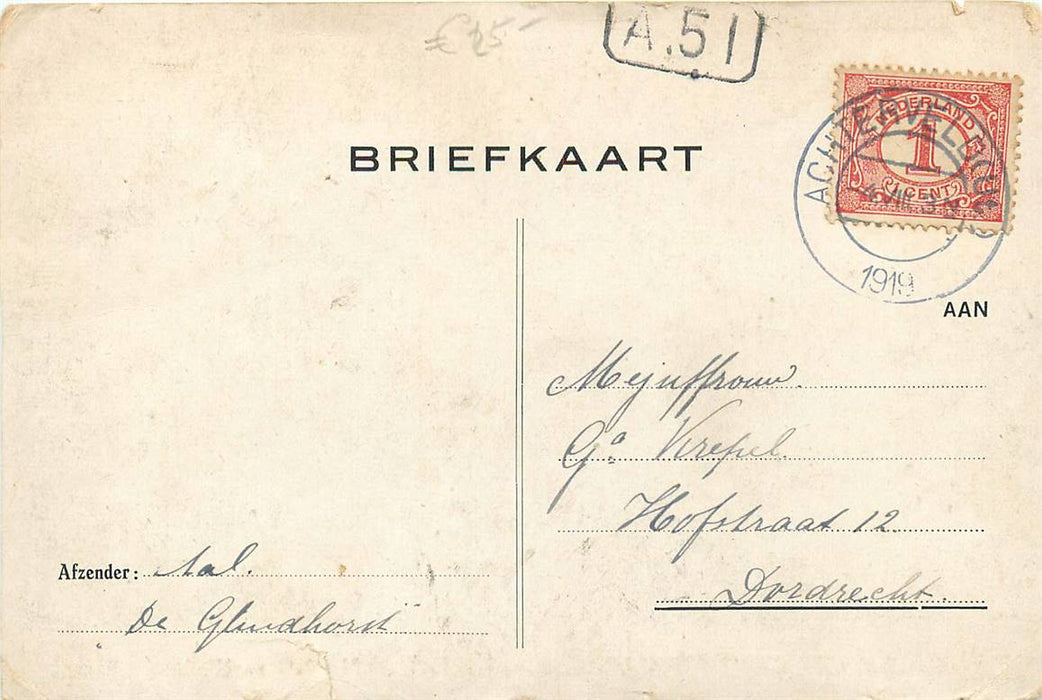 € 25-
A.51
BRIEFKAART
NEDERLAND
1
CENT
ACHTERVELD
1919
AAN
Mejuffrouw.
Ga Krepel.
Hofstraat 12
Dordrecht.
Afzender: Aal.
De Glindhorst